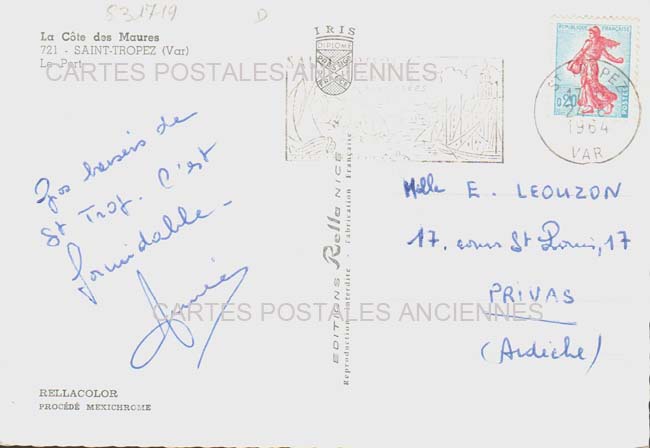 531719
D
La Côte des Maures
721 - SAINT-TROPEZ (Var)
Le Port
CARTES POSTALES ANCIENNES
IRIS
DIPLOME
ST TROPEZ
17
1964
VAR
0,20
POSTES
Gos baisers de
St Trop. C'est
formidable -
Annie
EDITIONS Rella NICE
Reproduction interdite - Fabrication Française
Mlle E. LEOUZON
17, cours St Louis, 17
PRIVAS
(Ardèche)
CARTES POSTALES ANCIENNES
RELLACOLOR
PROCÉDÉ MEXICHROME